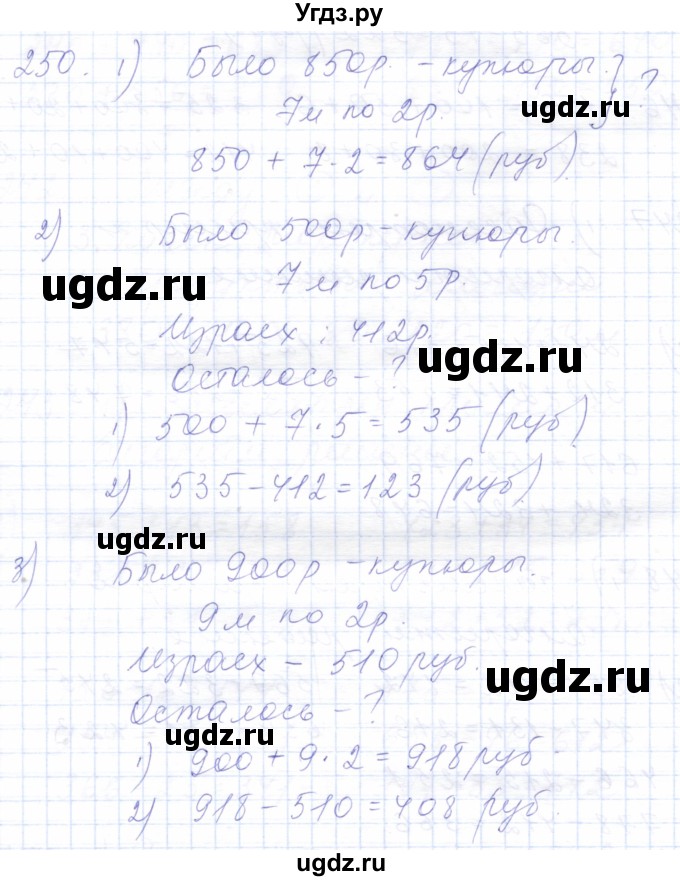 Угдз.ру
250. 1) Было 850р. - купюры. } ?
7м по 2р.
ugdz.ru
850 + 7·2 = 864 (руб)
2) Было 500р - купюры.
ugdz.ru
7м по 5р.
Израсх: 412р.
ugdz.ru
Осталось - ?
1) 500 + 7·5 = 535 (руб)
2) 535 - 412 = 123 (руб)
ugdz.ru
3) Было 900р - купюры.
9м по 2р.
Израсх - 510 руб.
ugdz.ru
Осталось - ?
ugdz.ru
1) 900 + 9·2 = 918 руб.
2) 918 - 510 = 408 руб.
ugdz.ru